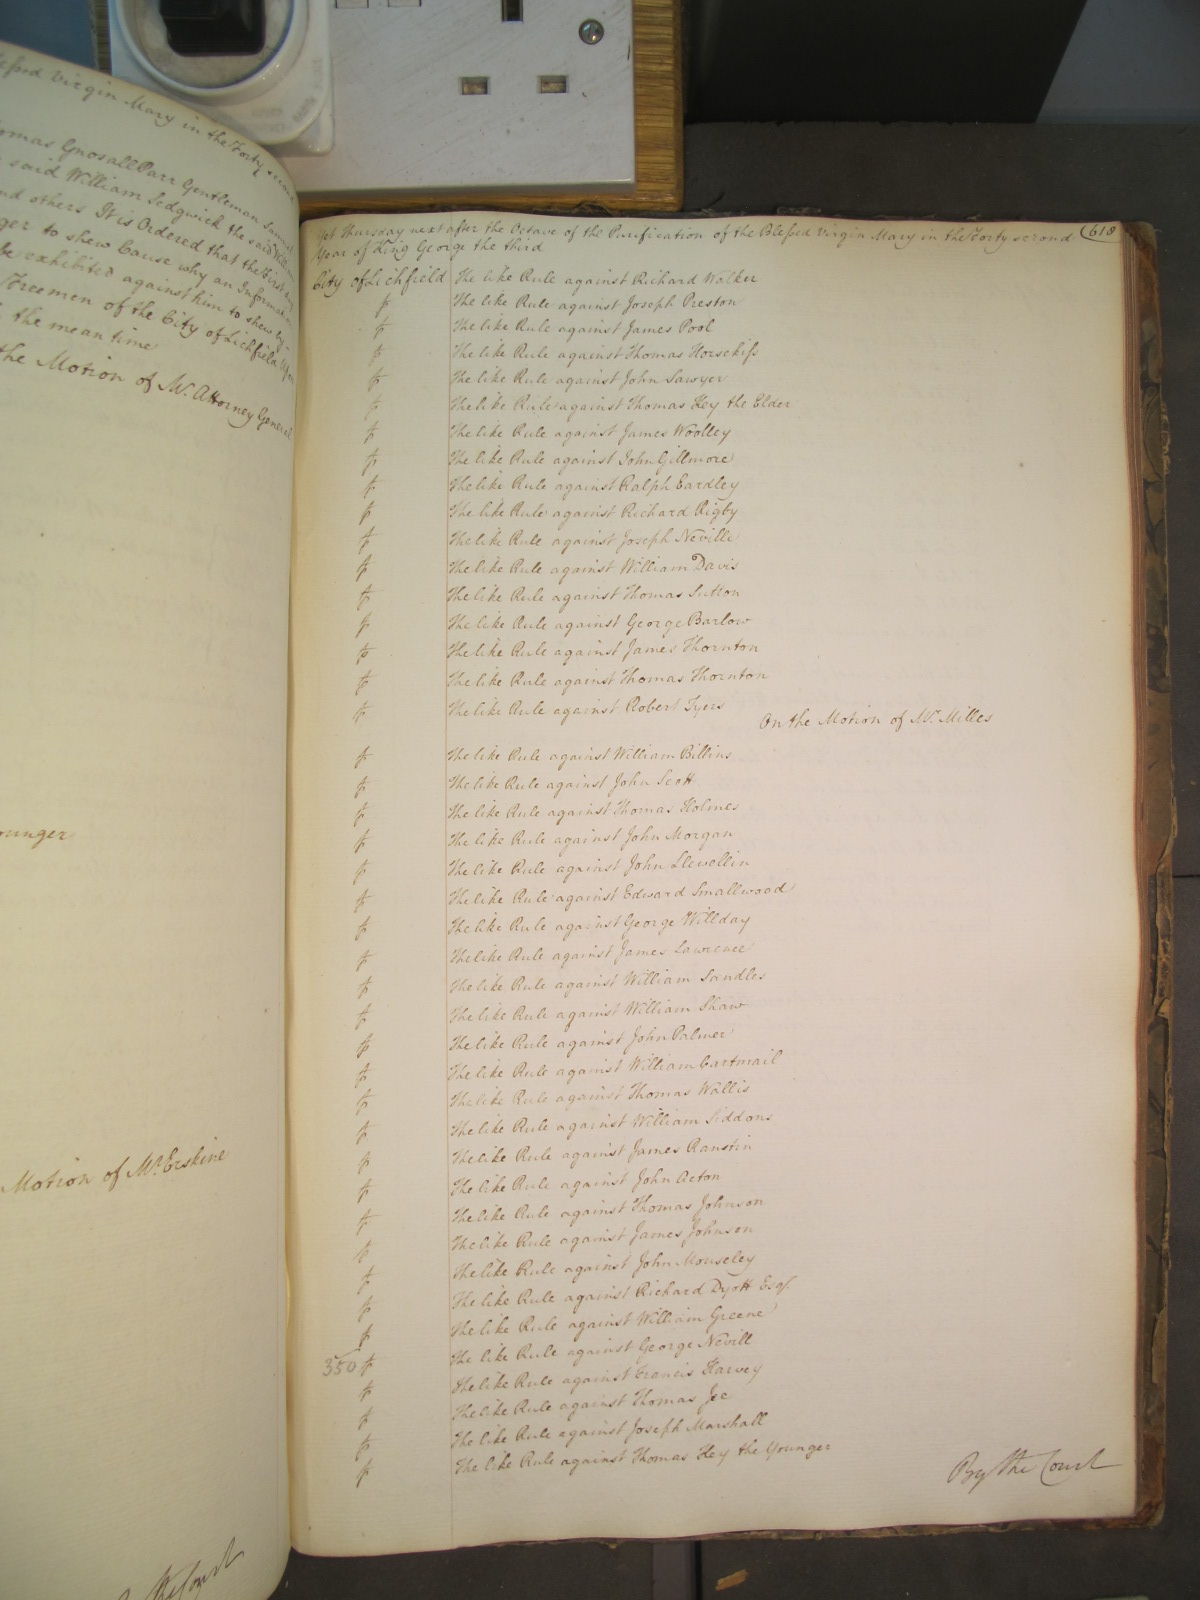 lessed Virgin Mary in the Forty second
omas Gnosall Parr Gentleman Samuel
said William Sedgwick the said William
nd others It is Ordered that the first day
ger to shew Cause why an Information
be exhibited against him to shew by
Freemen of the City of Lichfield upon
the mean time
the Motion of Mr. Attorney General
ounger
Motion of Mr. Erskine
the Court
Yet Thursday next after the Octave of the Purification of the Blessed Virgin Mary in the Forty second 618
Year of King George the third
City of Lichfield The like Rule against Richard Walker
The like Rule against Joseph Preston
The like Rule against James Pool
The like Rule against Thomas Horsekiss
The like Rule against John Sawyer
The like Rule against Thomas Key the Elder
The like Rule against James Woolley
The like Rule against John Gillmore
The like Rule against Ralph Eardley
The like Rule against Richard Rigby
The like Rule against Joseph Neville
The like Rule against William Davis
The like Rule against Thomas Sutton
The like Rule against George Barlow
The like Rule against James Thornton
The like Rule against Thomas Thornton
The like Rule against Robert Tyers
On the Motion of Mr. Milles
The like Rule against William Billins
The like Rule against John Scott
The like Rule against Thomas Holmes
The like Rule against John Morgan
The like Rule against John Llewellin
The like Rule against Edward Smallwood
The like Rule against George Willday
The like Rule against James Lawrence
The like Rule against William Sandles
The like Rule against William Shaw
The like Rule against John Palmer
The like Rule against William Cartmail
The like Rule against Thomas Wallis
The like Rule against William Siddons
The like Rule against James Ranstin
The like Rule against John Acton
The like Rule against Thomas Johnson
The like Rule against James Johnson
The like Rule against John Mouseley
The like Rule against Richard Dyott Esqr.
The like Rule against William Greene
350 The like Rule against George Nevill
The like Rule against Francis Harvey
The like Rule against Thomas Jee
The like Rule against Joseph Marshall
The like Rule against Thomas Key the Younger
By the Court